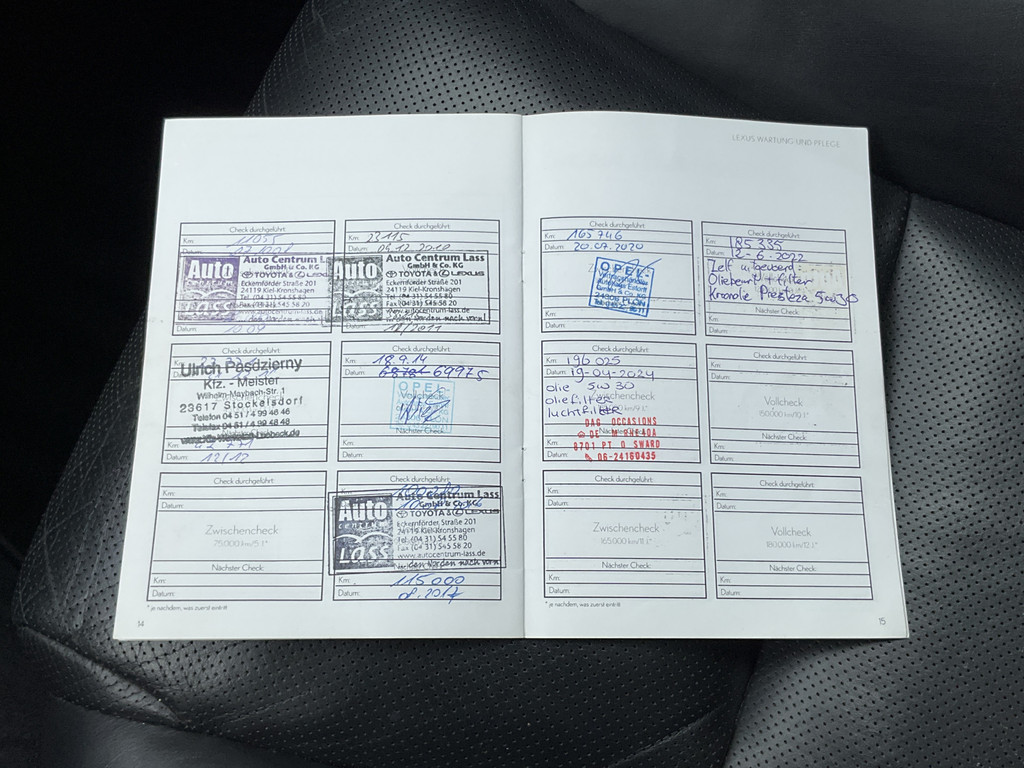 LEXUS WARTUNG UND PFLEGE
Check durchgeführt:
Km: 11055
Datum:
Auto
LASS
Auto Centrum Lass
GmbH & Co. KG
TOYOTA & LEXUS
Eckernförder Straße 201
24119 Kiel-Kronshagen
Tel. (04 31) 54 55 80
Fax (04 31) 545 58 20
www.autocentrum-lass.de
Datum: 10.09
Check durchgeführt:
Km: 23115
Datum: 09.12.2010
Auto
LASS
Auto Centrum Lass
GmbH & Co. KG
TOYOTA & LEXUS
Eckernförder Straße 201
24119 Kiel-Kronshagen
Tel. (04 31) 54 55 80
Fax (04 31) 545 58 20
www.autocentrum-lass.de
... den Norden nach vorn!
Datum: 12/2011
Check durchgeführt:
Ulrich Pasdzierny
Kfz. - Meister
Wilhelm-Maybach-Str. 1
23617 Stockelsdorf
Telefon 04 51 / 4 99 46 46
Telefax 04 51 / 4 99 46 48
Km:
Datum: 12/12
Check durchgeführt:
Km: 18.9.14
Datum: 69975
OPEL
Vollcheck
Nächster Check:
Km:
Datum:
Check durchgeführt:
Km:
Datum:
Zwischencheck
75.000 km/5 J.*
Nächster Check:
Km:
Datum:
Check durchgeführt:
Auto
CENTRUM
LASS
Auto Centrum Lass
GmbH & Co. KG
TOYOTA & LEXUS
Eckernförder Straße 201
24119 Kiel-Kronshagen
Tel. (04 31) 54 55 80
Fax (04 31) 545 58 20
www.autocentrum-lass.de
... den Norden nach vorn!
Km: 115.000
Datum: 08.2017
* je nachdem, was zuerst eintritt
14
Check durchgeführt:
Km: 165746
Datum: 20.07.2020
OPEL
24306 PLÖN
Km:
Datum:
Check durchgeführt:
Km: 185335
Datum: 12-6-2022
Zelf uitgevoerd
Oliebeurt + filter
Kroonolie Presteza 5w30
Nächster Check:
Km:
Datum:
Check durchgeführt:
Km: 196025
Datum: 19-04-2024
olie 5W30
oliefilter
luchtfilter
DAG OCCASIONS
8701 PT
06-24160435
Km:
Datum:
Check durchgeführt:
Km:
Datum:
Vollcheck
150.000 km/10 J.*
Nächster Check:
Km:
Datum:
Check durchgeführt:
Km:
Datum:
Zwischencheck
165.000 km/11 J.*
Nächster Check:
Km:
Datum:
Check durchgeführt:
Km:
Datum:
Vollcheck
180.000 km/12 J.*
Nächster Check:
Km:
Datum:
* je nachdem, was zuerst eintritt
15